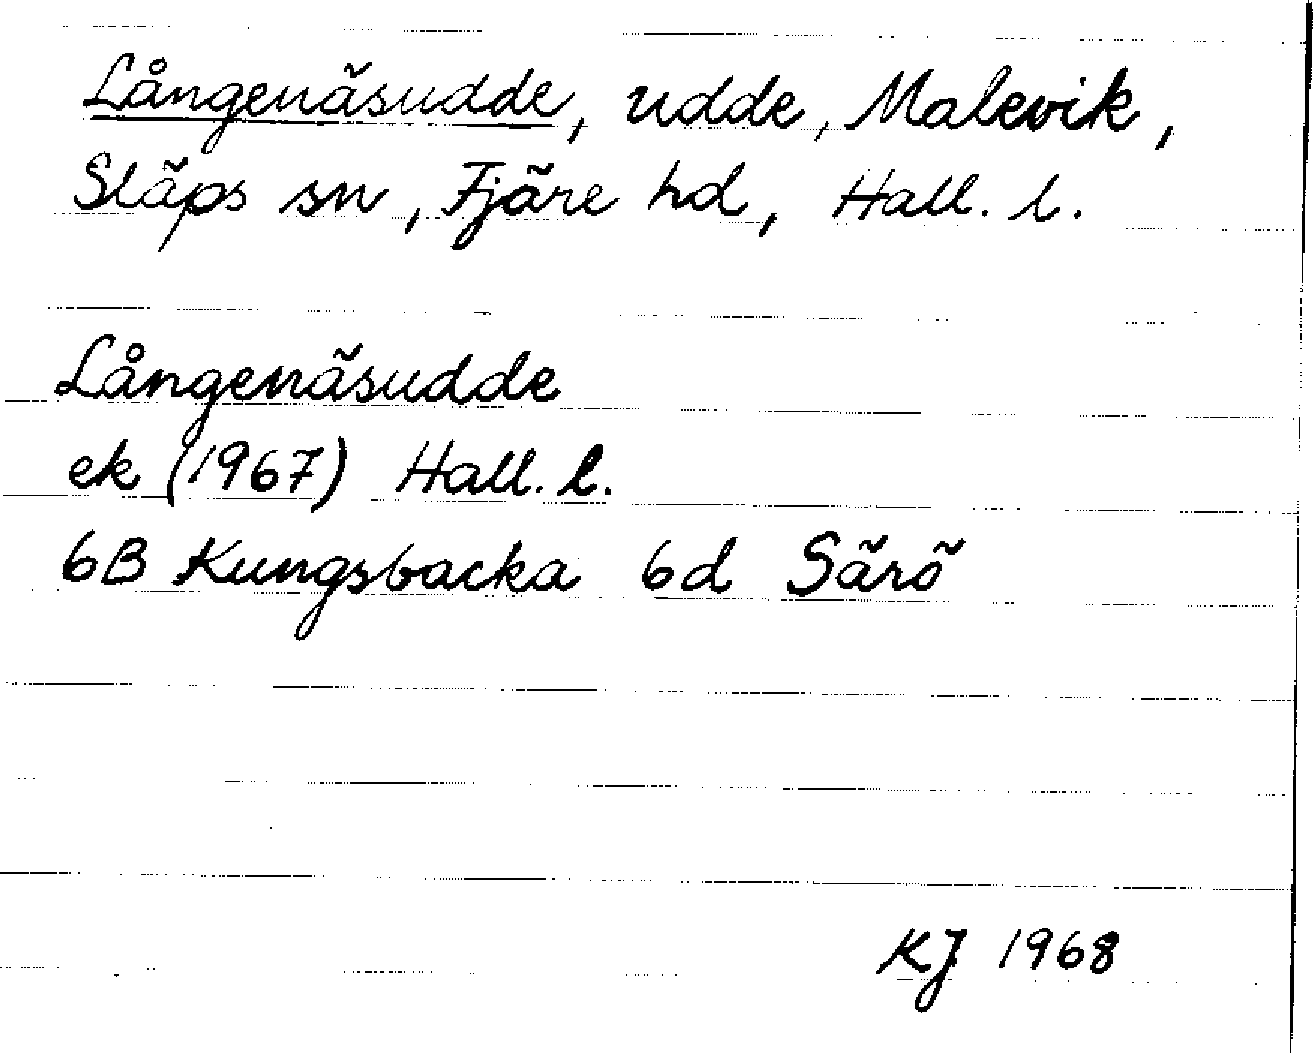 Långenäsudde, udde, Malevik,
Släps sn, Fjäre hd, Hall. l.
Långenäsudde
ek (1967) Hall. l.
6B Kungsbacka 6d Särö
KJ 1968